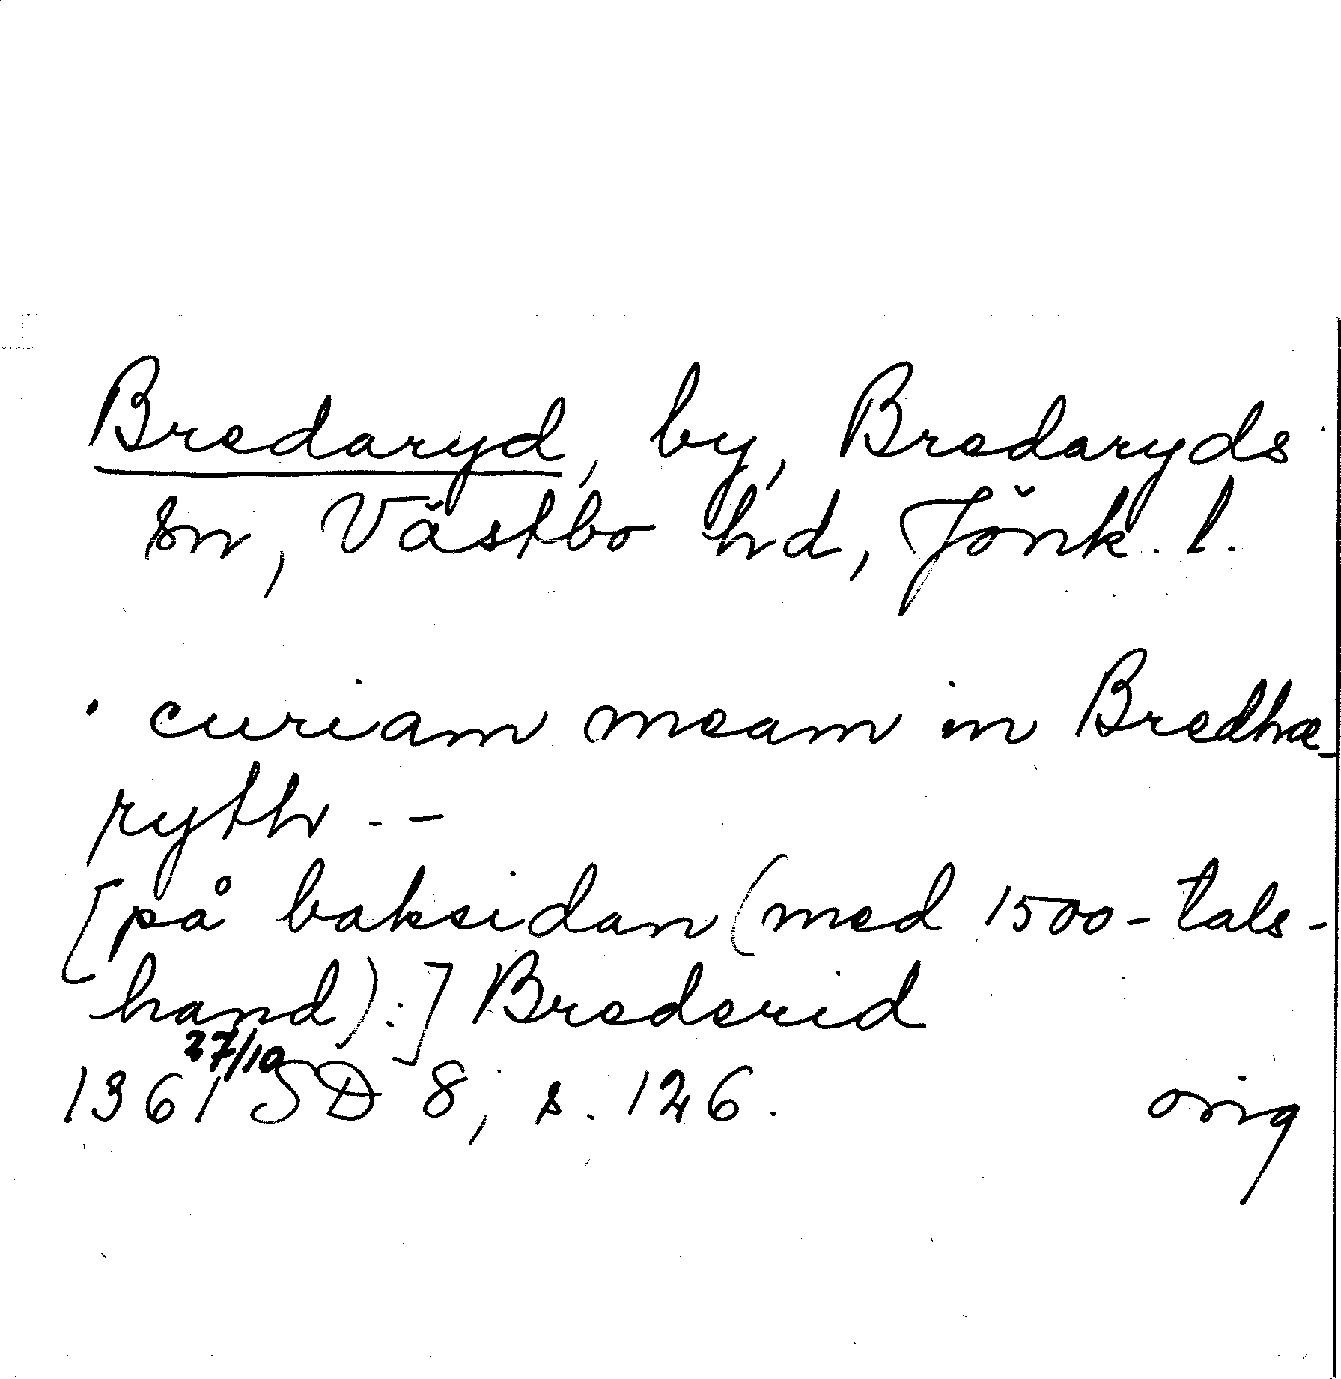 Bredaryd, by, Bredaryds
sn, Västbo hd, Jönk. l.
· curiam meam in Bredhæ-
ryth --
[på baksidan (med 1500-tals-
hand):] Brederid
27/10
1361 SD 8, s. 126. orig